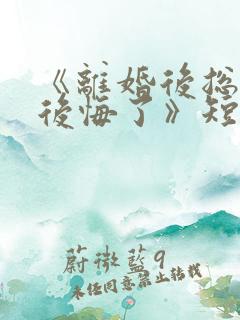 《離婚後總
後悔了》短
蔚微藍9
未經同意禁止轉載